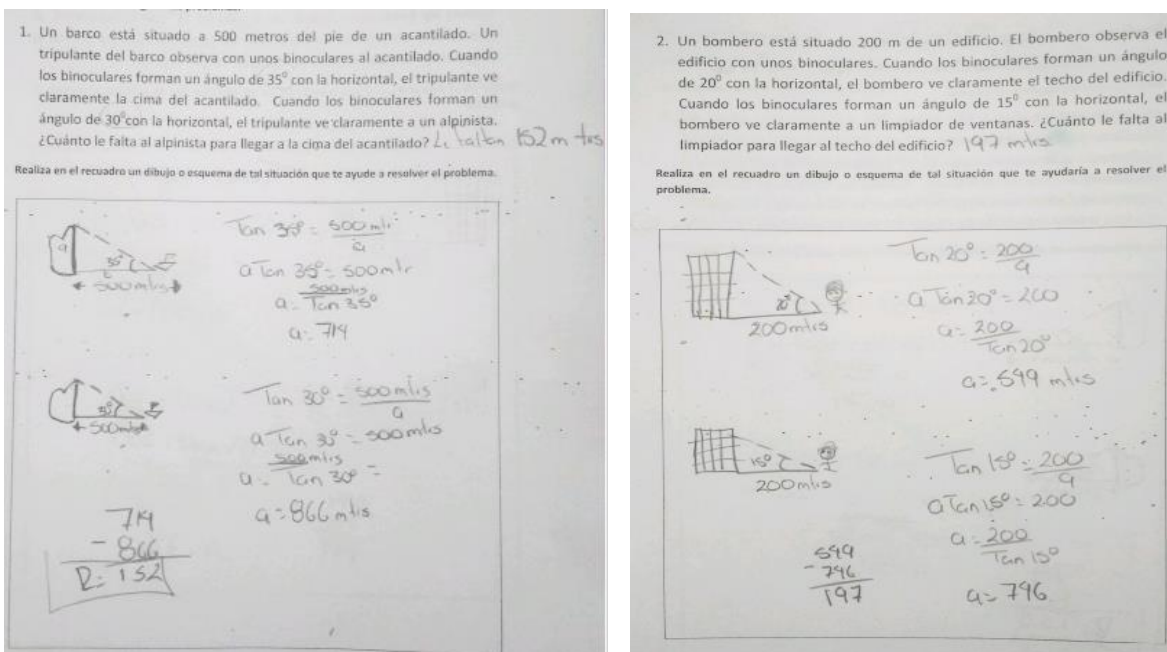 1. Un barco está situado a 500 metros del pie de un acantilado. Un
tripulante del barco observa con unos binoculares al acantilado. Cuando
los binoculares forman un ángulo de 35° con la horizontal, el tripulante ve
claramente la cima del acantilado. Cuando los binoculares forman un
ángulo de 30° con la horizontal, el tripulante ve claramente a un alpinista.
¿Cuánto le falta al alpinista para llegar a la cima del acantilado? Le faltan 152 m trs
Realiza en el recuadro un dibujo o esquema de tal situación que te ayude a resolver el problema.
a
35°
500 mtrs
Tan 35° = 500 mtr
a
a Tan 35° = 500 mtr
500 mtrs
a = Tan 35°
a = 714
30°
500 mtrs
Tan 30° = 500 mtrs
a
a Tan 30° = 500 mtrs
500 mtrs
a = Tan 30° =
a = 866 mtrs
714
- 866
R = 152
2. Un bombero está situado 200 m de un edificio. El bombero observa el
edificio con unos binoculares. Cuando los binoculares forman un ángulo
de 20° con la horizontal, el bombero ve claramente el techo del edificio.
Cuando los binoculares forman un ángulo de 15° con la horizontal, el
bombero ve claramente a un limpiador de ventanas. ¿Cuánto le falta al
limpiador para llegar al techo del edificio? 197 mtrs
Realiza en el recuadro un dibujo o esquema de tal situación que te ayudaría a resolver el
problema.
20°
200 mtrs
Tan 20° = 200
a
a Tan 20° = 200
a = 200
Tan 20°
a = 599 mtrs
15°
200 mtrs
Tan 15° = 200
a
a Tan 15° = 200
a = 200
Tan 15°
a = 796
599
- 796
197